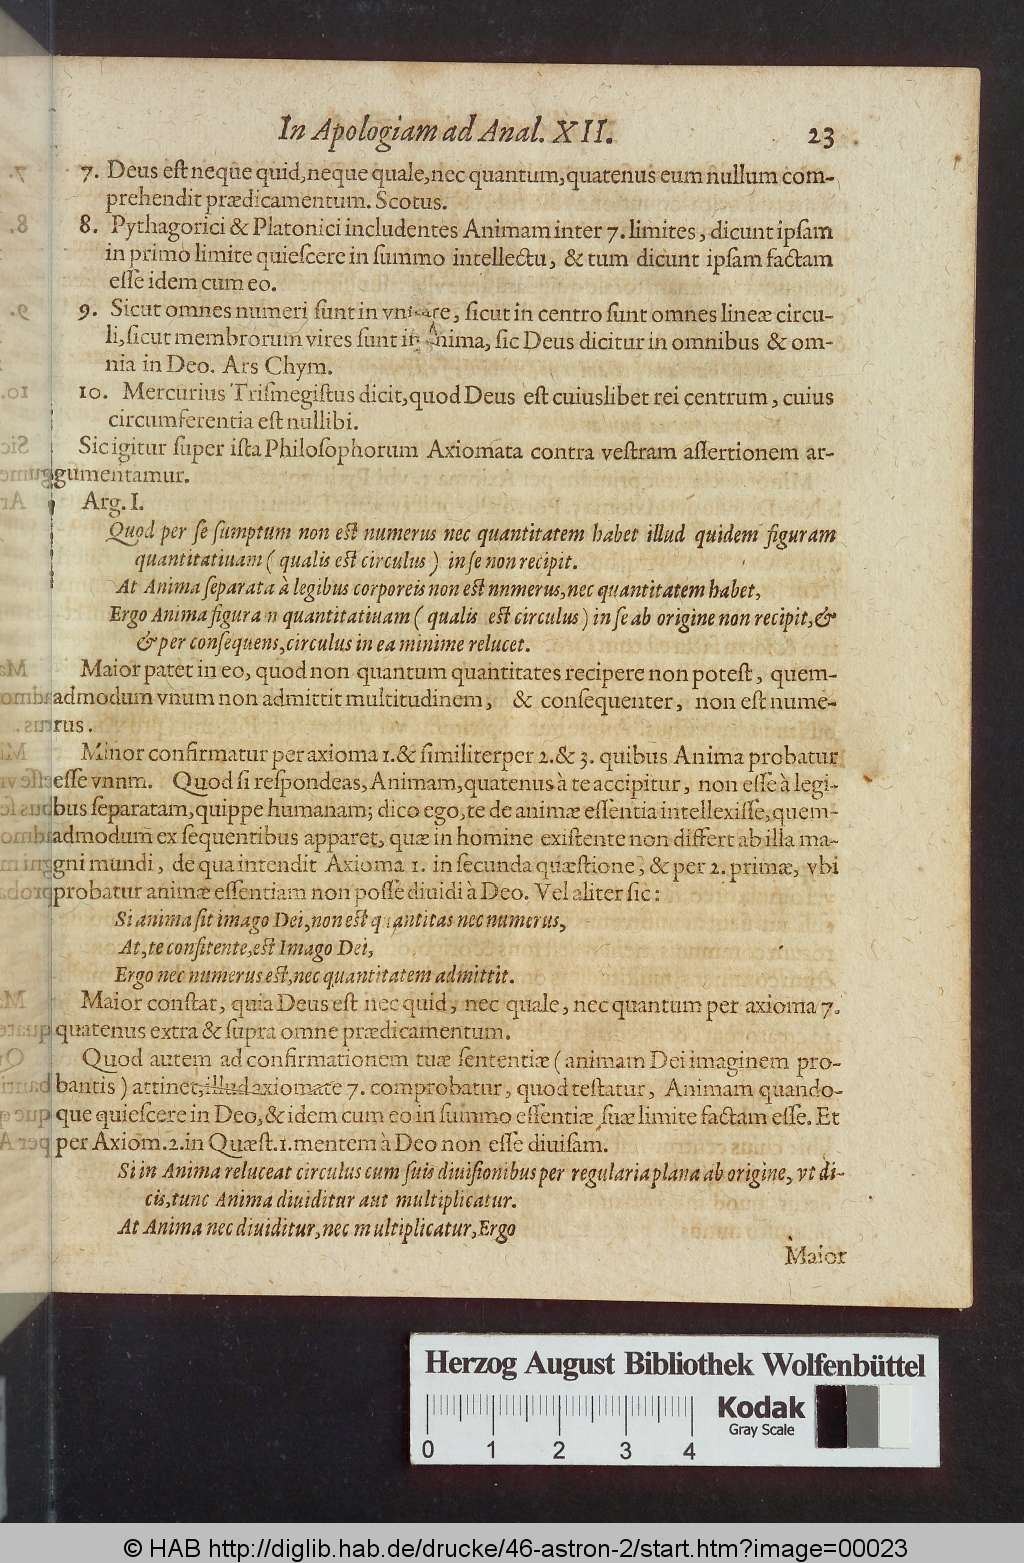 In Apologiam ad Anal. XII. 23
7. Deus eſt neque quid, neque quale, nec quantum, quatenus eum nullum com-
prehendit prædicamentum. Scotus.
8. Pythagorici & Platonici includentes Animam inter 7. limites, dicunt ipſam
in primo limite quieſcere in ſummo intellectu, & tum dicunt ipſam factam
eſſe idem cum eo.
9. Sicut omnes numeri ſunt in vnitate, ſicut in centro ſunt omnes lineæ circu-
li, ſicut membrorum vires ſunt in Anima, ſic Deus dicitur in omnibus & om-
nia in Deo. Ars Chym.
10. Mercurius Triſmegiſtus dicit, quod Deus eſt cuiuslibet rei centrum, cuius
circumferentia eſt nullibi.
Sic igitur ſuper iſta Philoſophorum Axiomata contra veſtram aſſertionem ar-
gumentamur.
Arg. I.
Quod per ſe ſumptum non eſt numerus nec quantitatem habet illud quidem figuram
quantitatiuam (qualis eſt circulus) in ſe non recipit.
At Anima ſeparata à legibus corporeis non eſt nnmerus, nec quantitatem habet,
Ergo Anima figuram quantitatiuam (qualis eſt circulus) in ſe ab origine non recipit, &
& per conſequens, circulus in ea minime relucet.
Maior patet in eo, quod non quantum quantitates recipere non poteſt, quem-
admodum vnum non admittit multitudinem, & conſequenter, non eſt nume-
rus.
Minor confirmatur per axioma 1. & ſimiliter per 2. & 3. quibus Anima probatur
eſſe vnnm. Quod ſi reſpondeas, Animam, quatenus à te accipitur, non eſſe à legi-
bus ſeparatam, quippe humanam; dico ego, te de animæ eſſentia intellexiſſe, quem-
admodum ex ſequentibus apparet, quæ in homine exiſtente non differt ab illa ma-
gni mundi, de qua intendit Axioma 1. in ſecunda quæſtione, & per 2. primæ, vbi
probatur animæ eſſentiam non poſſe diuidi à Deo. Vel aliter ſic:
Si anima ſit imago Dei, non eſt quantitas nec numerus,
At, te confitente, eſt Imago Dei,
Ergo nec numerus eſt, nec quantitatem admittit.
Maior conſtat, quia Deus eſt nec quid, nec quale, nec quantum per axioma 7.
quatenus extra & ſupra omne prædicamentum.
Quod autem ad confirmationem tuæ ſententiæ (animam Dei imaginem pro-
bantis) attinet, illud axiomate 7. comprobatur, quod teſtatur, Animam quando-
que quieſcere in Deo, & idem cum eo in ſummo eſſentiæ ſuæ limite factam eſſe. Et
per Axiom. 2. in Quæſt. 1. mentem à Deo non eſſe diuiſam.
Si in Anima reluceat circulus cum ſuis diuiſionibus per regularia plana ab origine, vt di-
cis, tunc Anima diuiditur aut multiplicatur.
At Anima nec diuiditur, nec multiplicatur, Ergo
Maior
Herzog August Bibliothek Wolfenbüttel
Kodak
Gray Scale
0 1 2 3 4
© HAB http://diglib.hab.de/drucke/46-astron-2/start.htm?image=00023